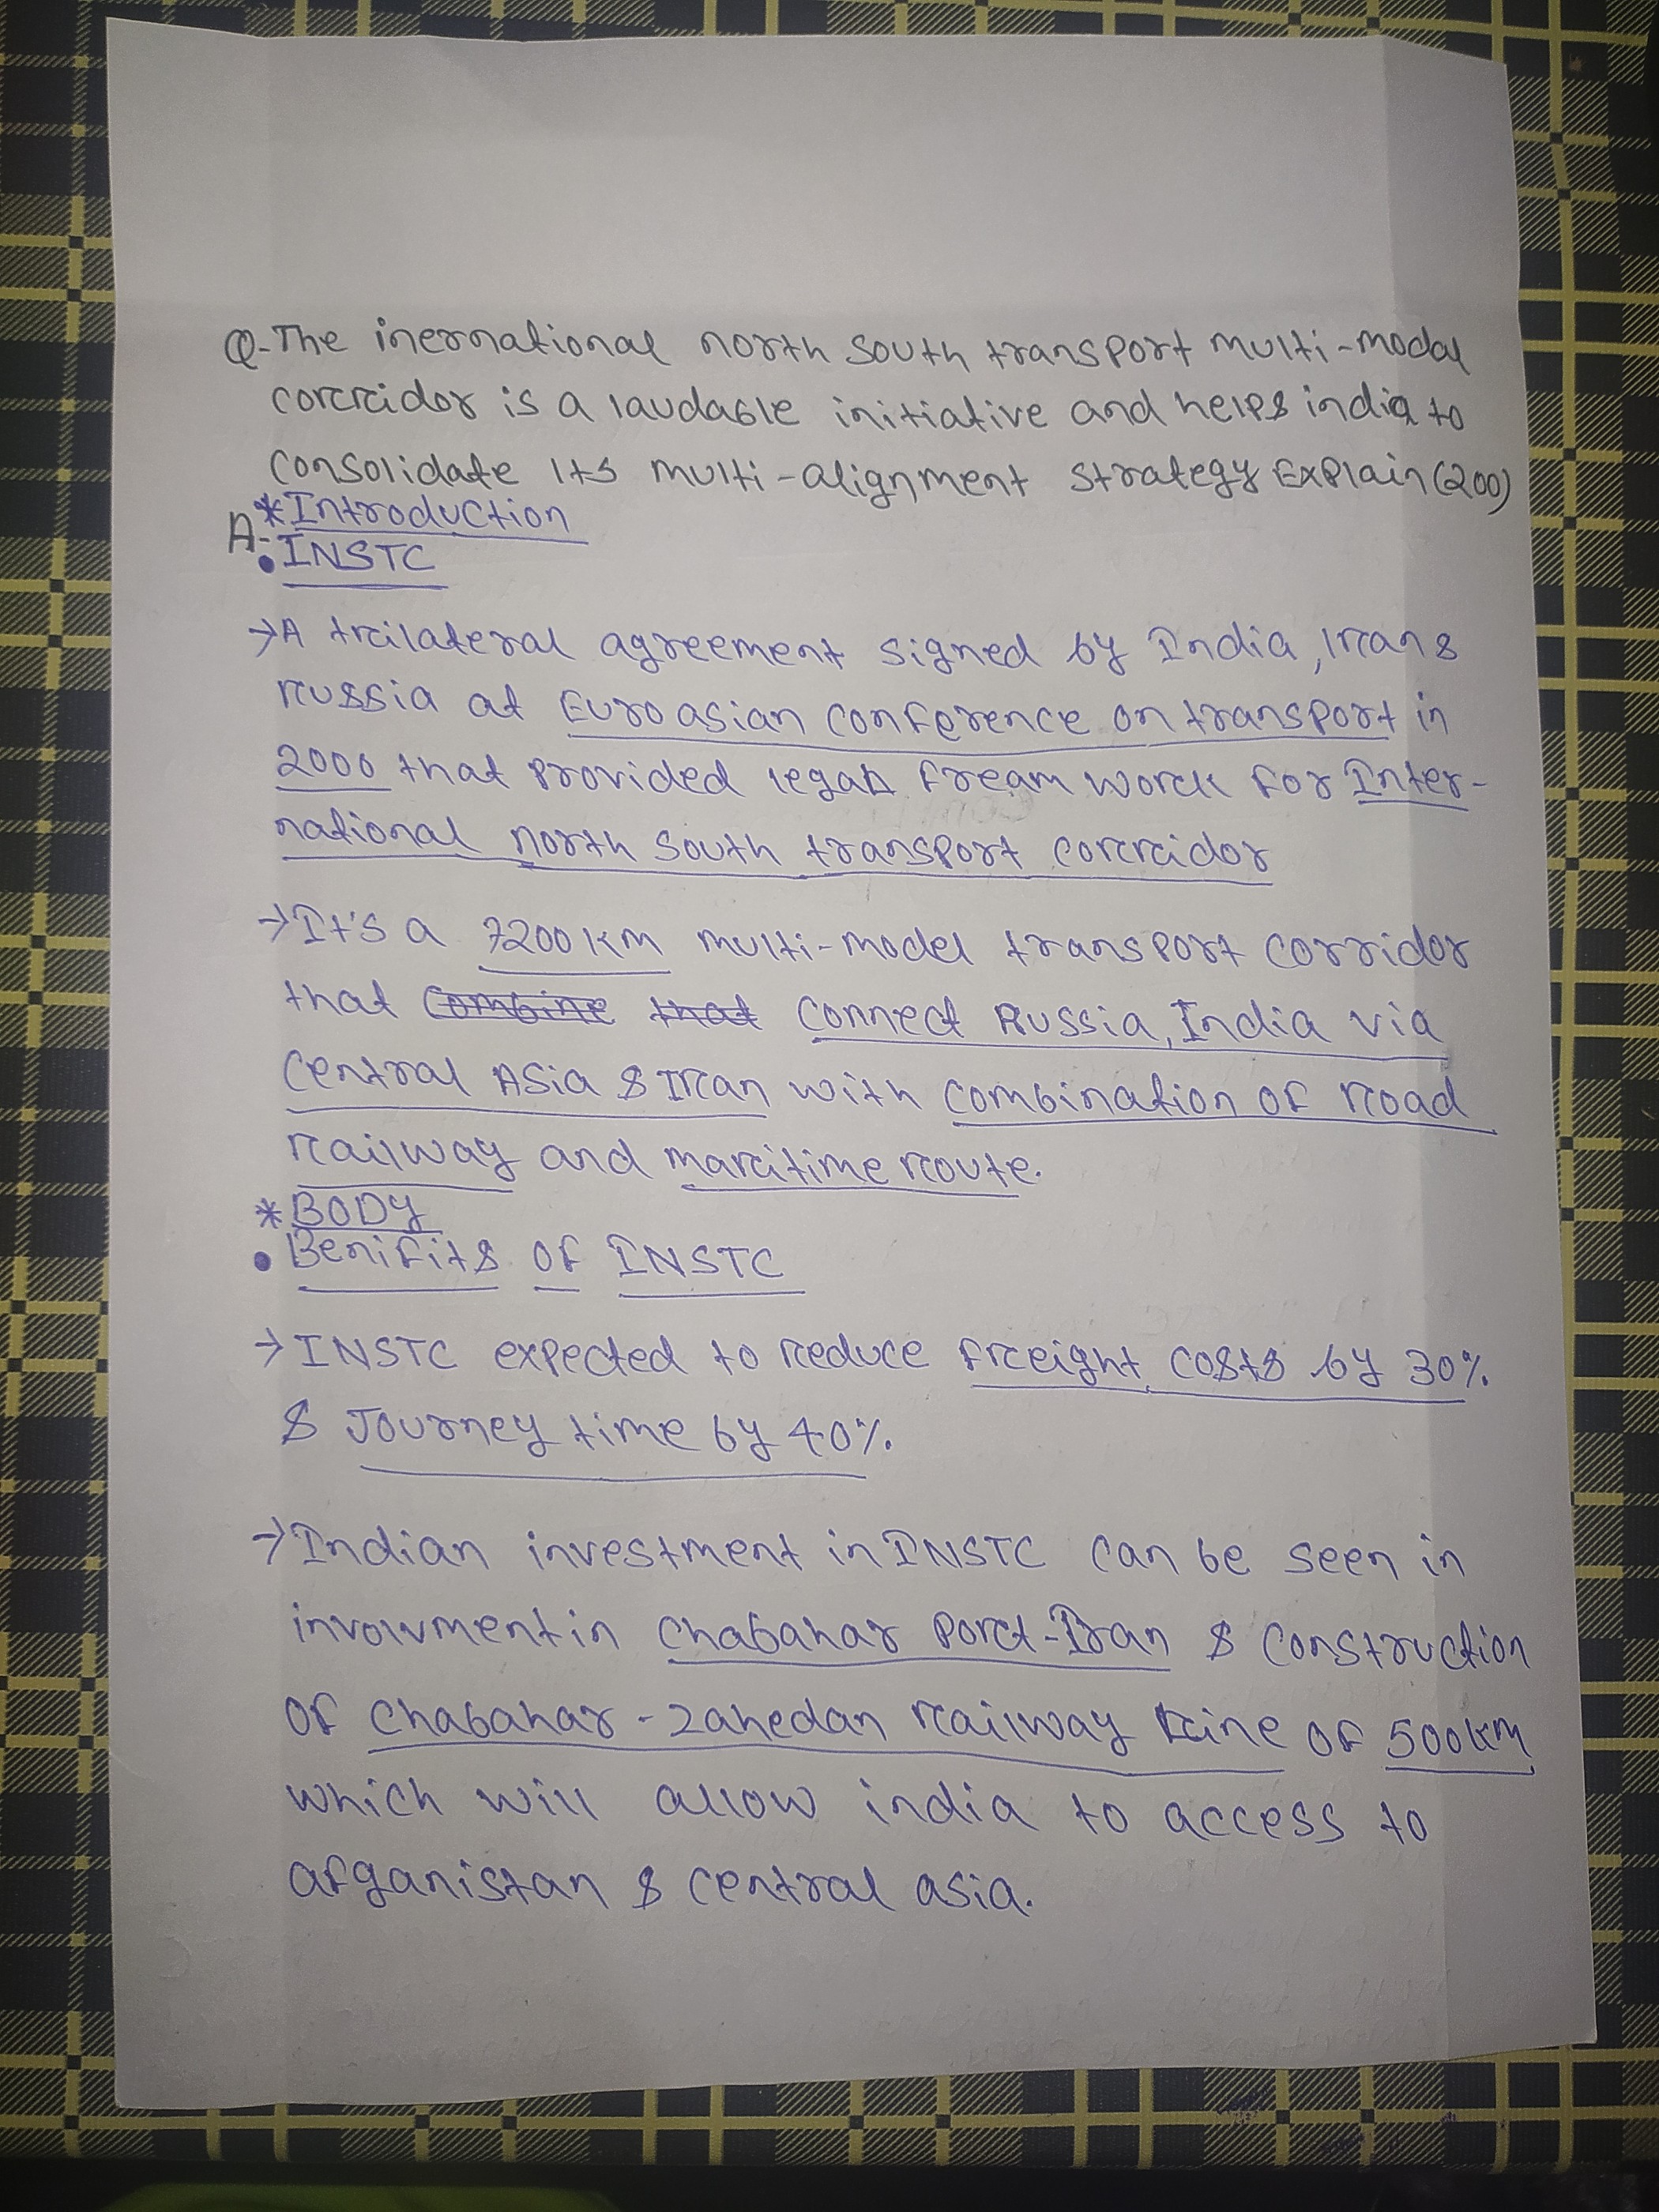 Q- The inernational north south transport multi-modal
corridor is a laudable initiative and helps india to
consolidate its multi-alignment strategy Explain (200)
* Introduction
A-
• INSTC
→ A trilateral agreement signed by India, Iran &
russia at Euro asian conference on transport in
2000 that provided legal fream work for Inter-
national north south transport corridor
→ It's a 7200 km multi-model transport corridor
that combine that connect Russia, India via
central Asia & Iran with combination of road
railway and maritime route.
* BODY
• Benifits of INSTC
→ INSTC expected to reduce freight costs by 30%
& Journey time by 40%.
→ Indian investment in INSTC can be seen in
involvment in chabahar port-Iran & construction
of chabahar - zahedan railway line of 500km
which will allow india to access to
afganistan & central asia.